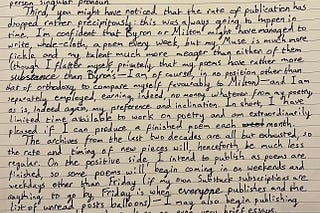 person singular pronoun.
Third, you might have noticed that the rate of publication has
dropped rather precipitously: this was always going to happen in
time. I'm confident that Byron or Milton might have managed to
write, whole-cloth, a poem every week, but my Muse is much more
fickle and my talent much more meager than either of them
(though I flatter myself, privately, that my poems have rather more
substance than Byron's—I am, of course, in no position other than
that of orthodoxy to compare myself favourably to Milton)—and I am
regardless employed, earning, indeed, no money whatever from my poetry,
as is, indeed again, my preference and inclination. In short, I have
limited time available to work on poetry and am extraordinarily
pleased if I can produce a finished poem each month.
The archives from the last two decades are all but exhausted, so
the rate and timing of new pieces will henceforth be much less
regular. On the positive side, I intend to publish as poems are
finished, so some poems will begin coming in on weekends and
weekdays other than Friday (if my own Substack subscriptions are
anything to go by, Friday is when everyone publishes and the
list of unread posts balloons)—I may also begin publishing
even very brief essays